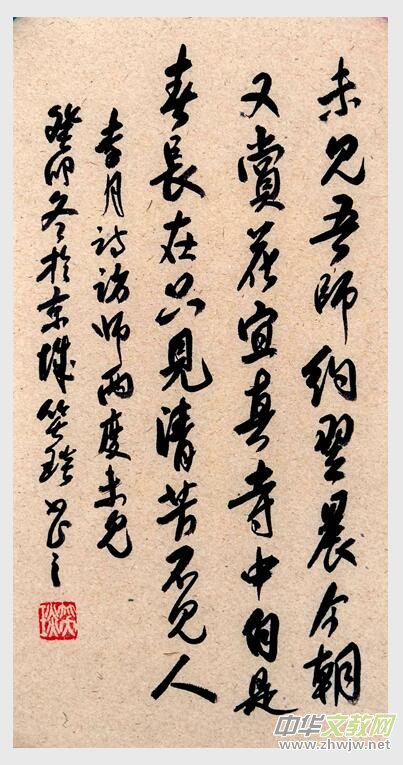 未见吾師约翌晨今朝
又賞花宜真寺中自是
春長在只見清苦不见人
李月诗访師两度未见
癸卯冬於京城笑琰书之
中华文教网
www.zhwjw.net